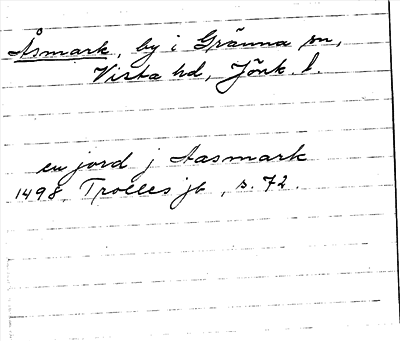 Åsmark, by i Gränna sn,
Vista hd, Jönk. l.
en jord j Aasmark
1498, Trolles jb, s. 72.